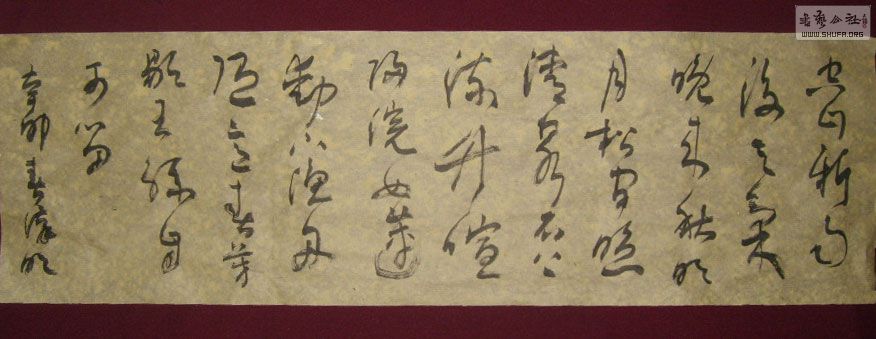 空山新雨
後天氣
晚来秋明
月松間照
清泉石上
流竹喧
歸浣女蓮
動下漁舟
隨意春芳
歇王孫自
可留
辛卯春
書藝公社
WWW.SHUFA.ORG